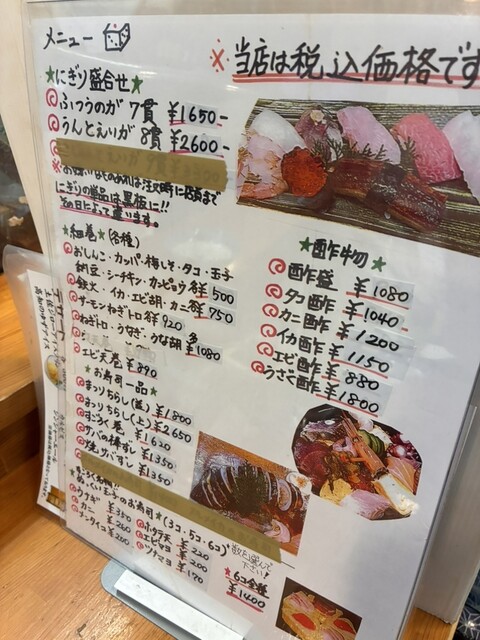 メニュー
※当店は税込価格です
★にぎり盛合せ★
ふつうのが 7貫 ¥1650-
うんとえいが 8貫 ¥2600-
にぎりの単品は黒板に!!
その日によって違います。
★細巻★(各種)
おしんこ・カッパ・梅しそ・タコ・玉子
納豆・シーチキン・カンピョウ 各¥500
鉄火・イカ・エビ胡・カニ 各¥750
サーモンねぎトロ 各¥920
ねぎトロ・うなぎ・うな胡 各¥1080
エビ天巻 ¥890
★お寿司一品★
まつりちらし(並) ¥1800
まつりちらし(上) ¥2650
すごろく巻 ¥1620
サバの棒すし ¥1350
焼サバすし ¥1350
お寿司★(3コ・5コ・6コ)
ウナギ ¥350
カニ ¥260
ナンクイコ ¥200
ホタテ天 ¥220
エビマヨ ¥200
ツナマヨ ¥170
数を選んで
下さい!
★6コ全種
¥1400
★酢物★
酢盛 ¥1080
タコ酢 ¥1040-
カニ酢 ¥1200
イカ酢 ¥1150
エビ酢 ¥880
うざく酢 ¥1800